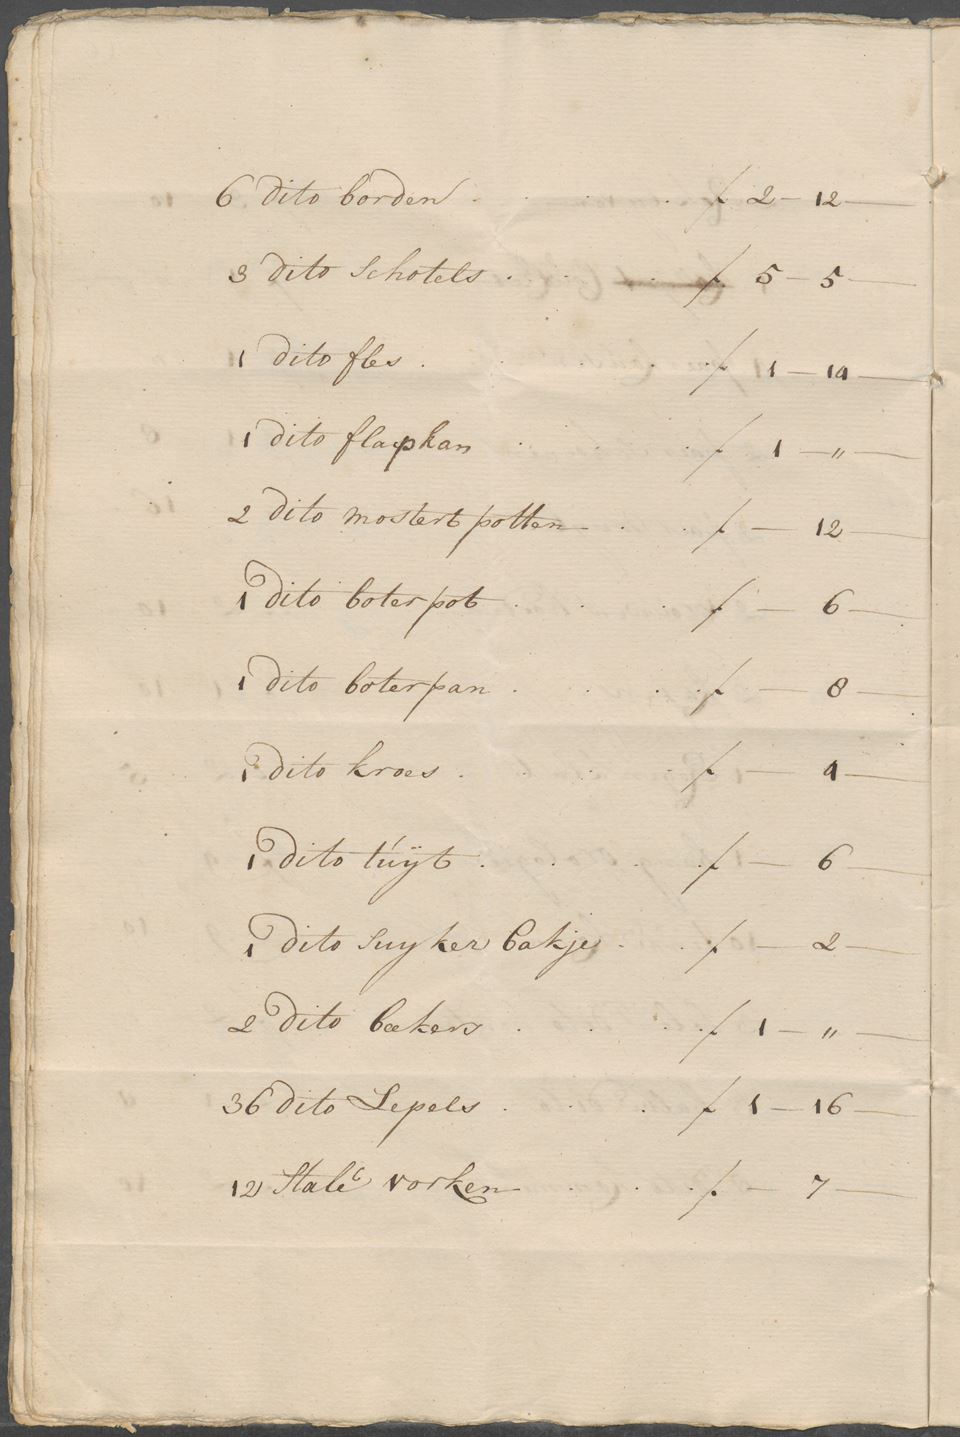 6 dito borden . . . . f 2 - 12 -
3 dito Schotels . . . f 5 - 5 -
1 dito fles . . . . f 1 - 14 -
1 dito flapkan . . . f 1 - " -
2 dito mostert potten . . f - 12 -
1 dito boter pot . . . f - 6 -
1 dito boter pan . . . f - 8 -
1 dito kroes . . . . f - 4 -
1 dito túÿt . . . . f - 6 -
1 dito Suyker bakje . . f - 2 -
2 dito bekers . . . . f 1 - " -
36 dito Lepels . . . f 1 - 16 -
12 Stale vorken . . . f - 7 -